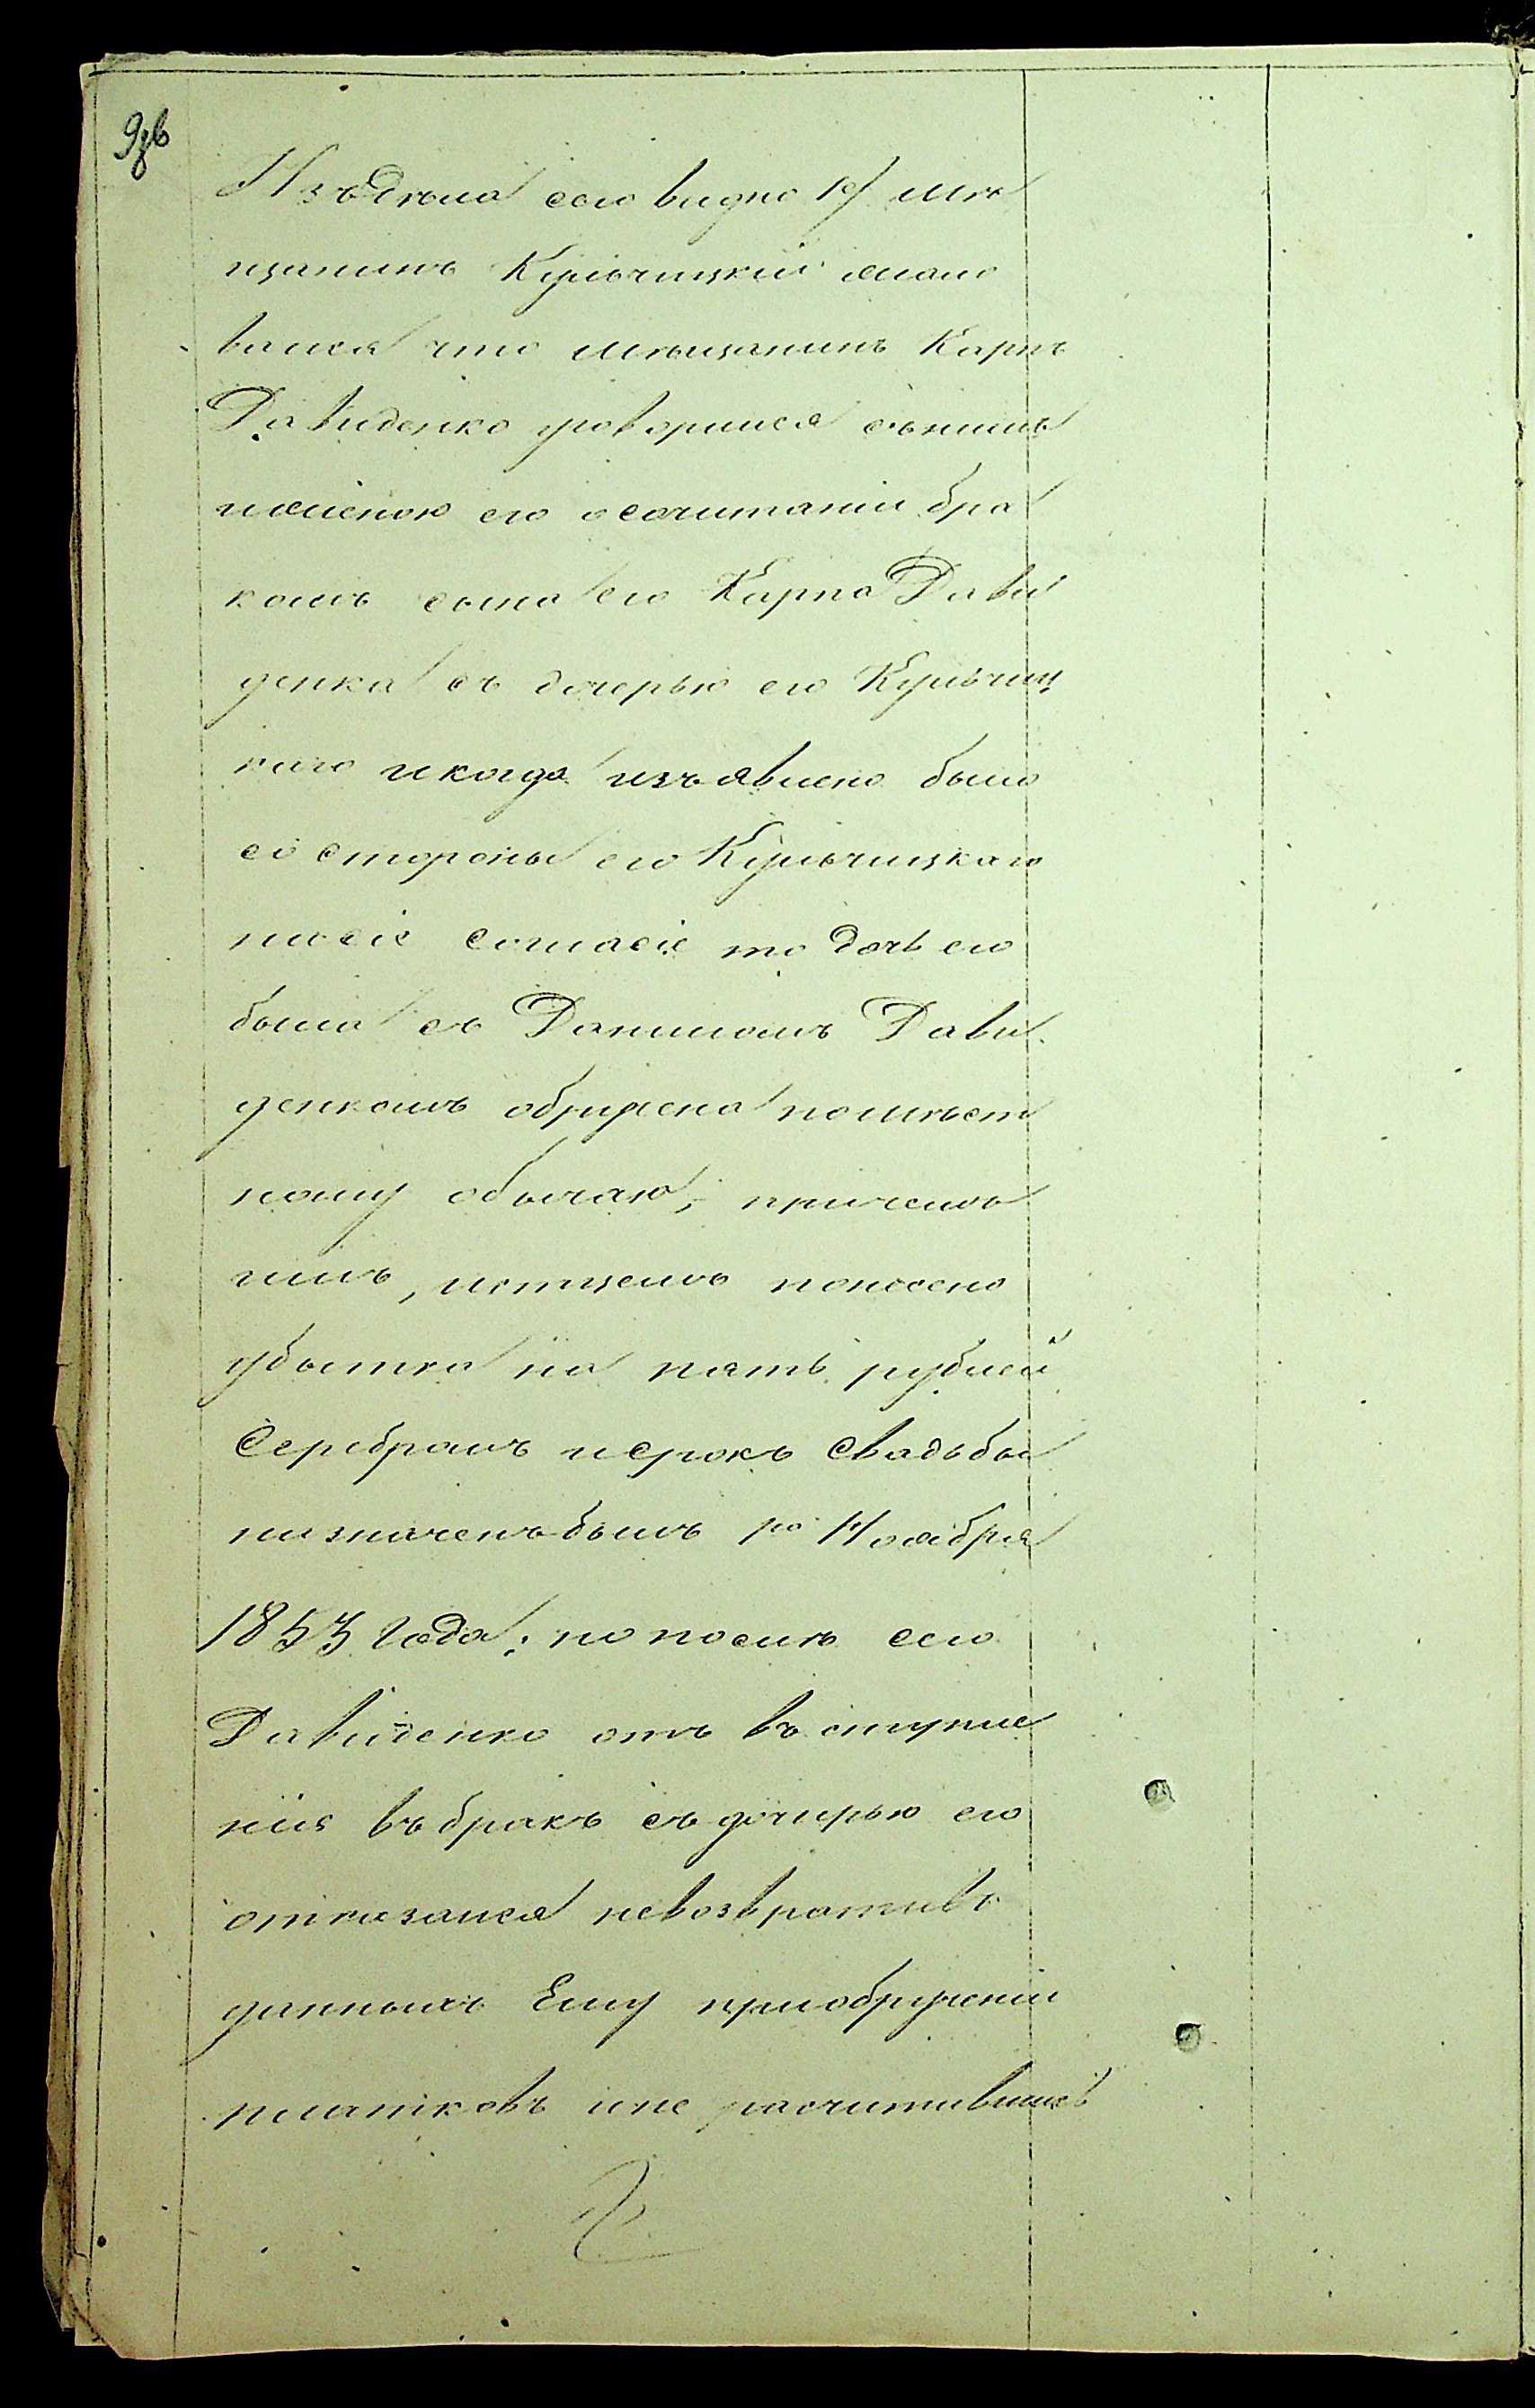 Изъ дѣла сего видно 1е/ мѣ
щанинъ Кульчицкій жало
вался что мѣщанинъ Карпъ
Давиденко уговорился съ нимъ
и женою его о сочитаніи бра
комъ сына его Карпа Дави
денка съ дочерью его Кульчиц
каго и когда изъявлено было
со стороны его Кульчицкаго
на сіе согласіе то дочь его
была съ Даниломъ Дави
денкомъ обручена по мѣст
ному обычаю, причемъ
имъ, истцемъ понесено
убытка на пять рублей
Серебромъ и срокъ свадьбы
назначенъ былъ 10 Ноября
1853 года; но послѣ сего
Давиденко отъ вступле
нія въ бракъ съ дочерью его
отказался невозвративъ
данныхъ Ему приобрученіи
платковъ ине расчитавшись